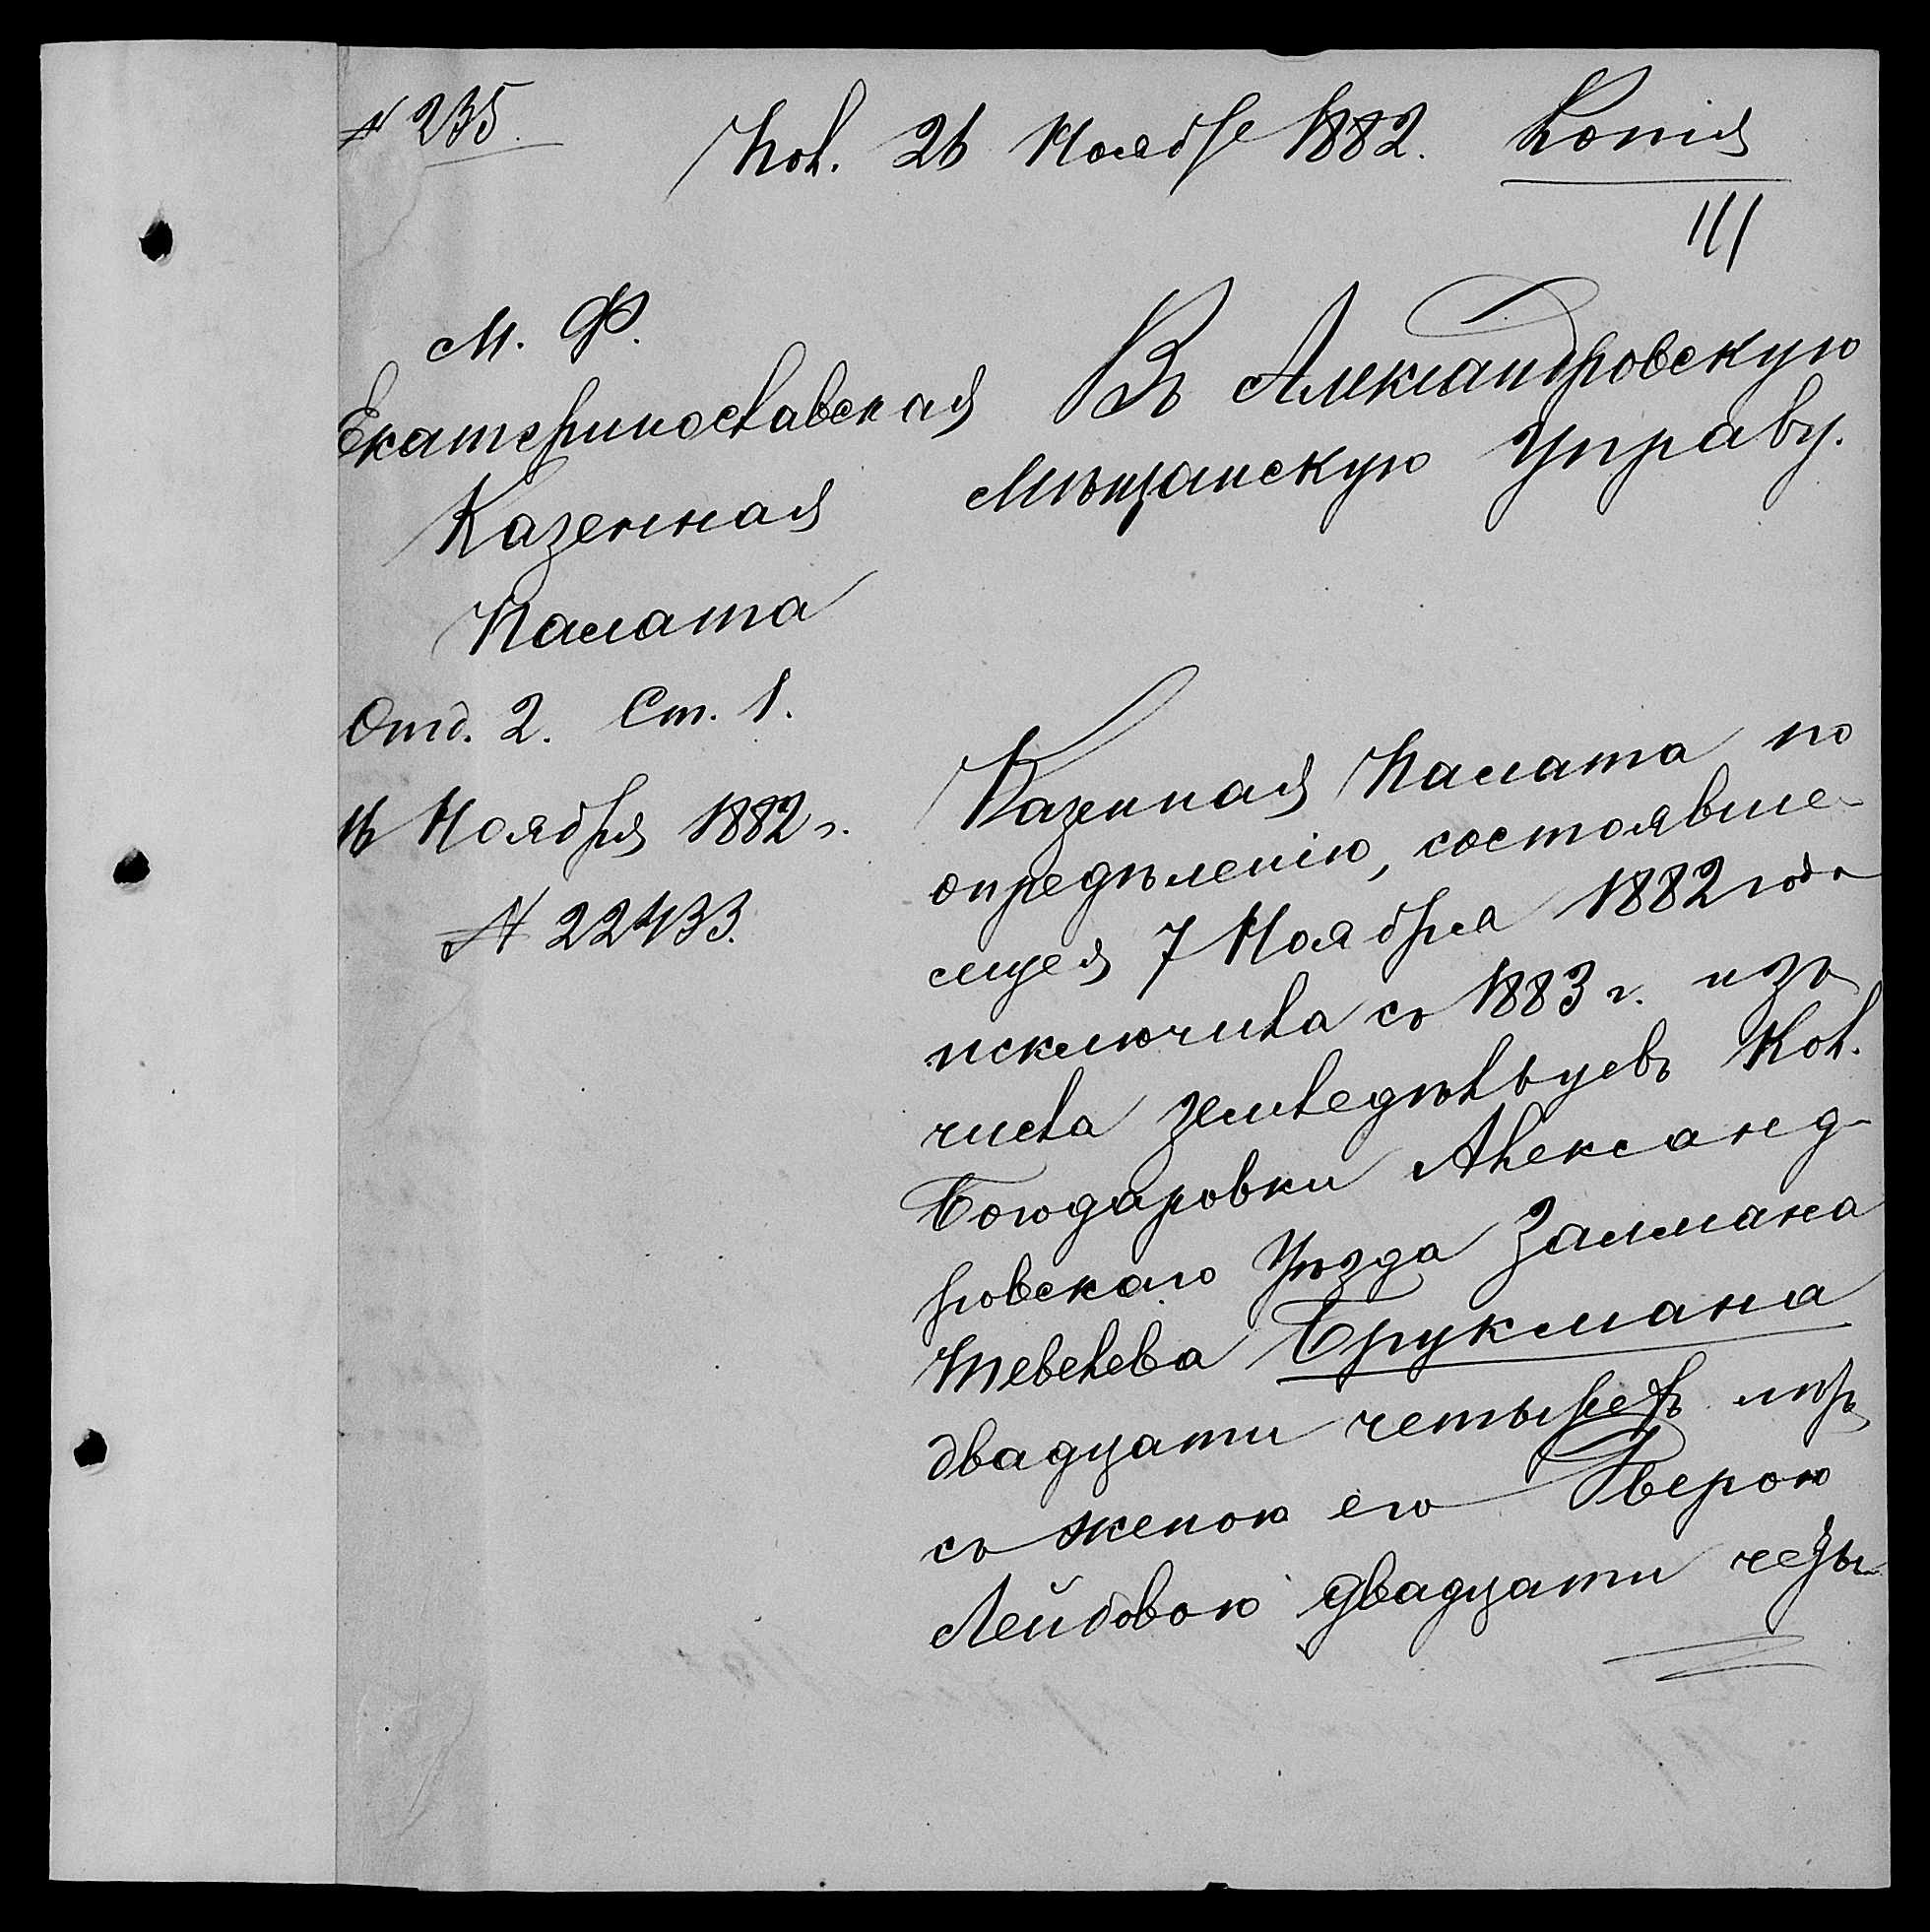 № 235.
Пол. 26 Ноября 1882. Копия
111
М. Ф.
Екатеринославская
Казенная
Палата
Отд. 2. Ст. 1.
16 Ноября 1882 г.
№ 22433.
Въ Александровскую
Мѣщанскую Управу.
Казенная Палата по
опредѣленію, состоявше-
муся 7 Ноября 1882 года
исключила съ 1883 г. изъ
числа земледѣльцевъ Кол.
Богодаровки Александ-
ровскаго Уѣзда Залмана
Тевелева Брукмана
двадцати четырехъ лѣтъ
съ женою его Двероою
Лейбовою двадцати четы-